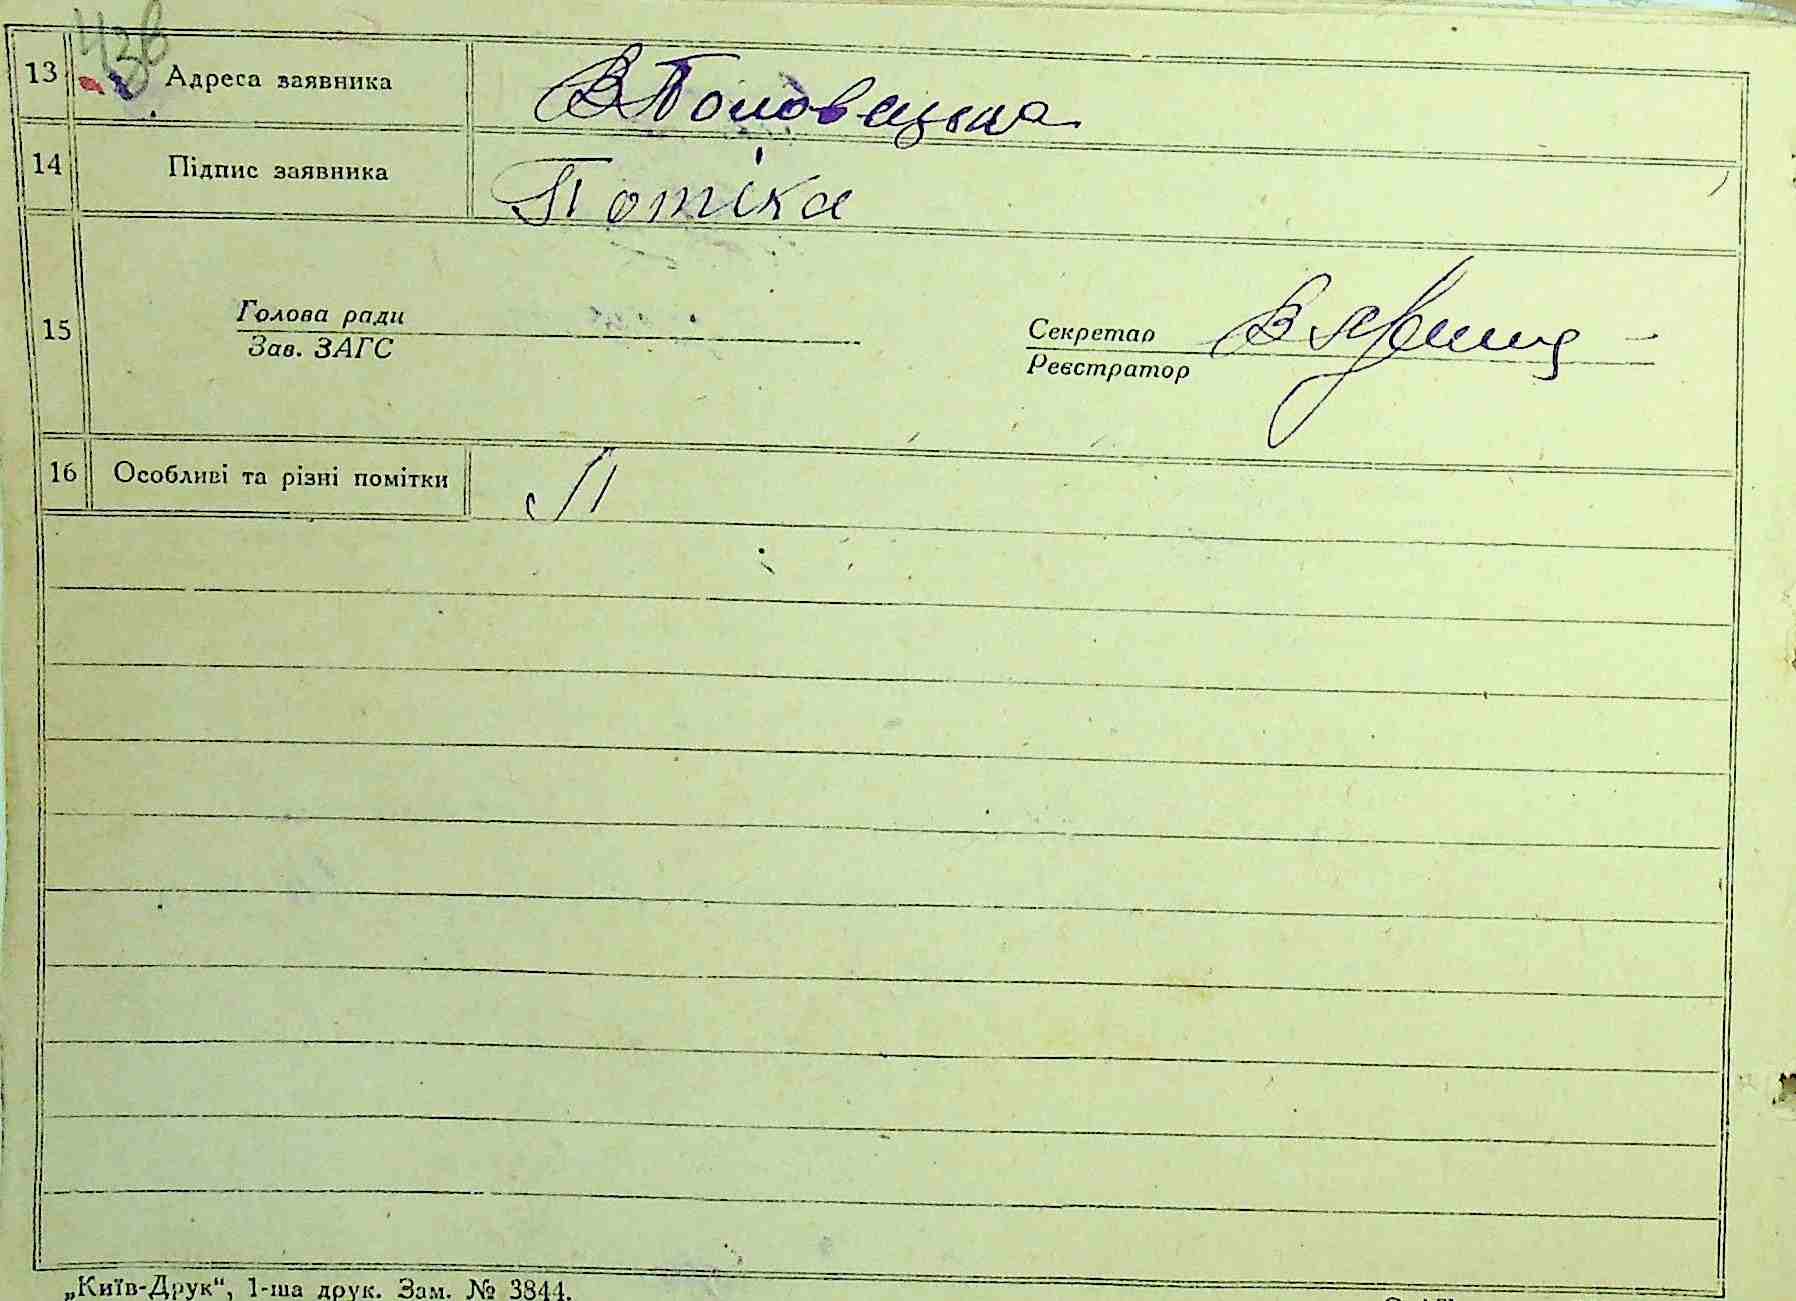 43в
13 Адреса заявника В Половецька
14 Підпис заявника Потіка
15 Голова ради
Зав. ЗАГС
Секретар
Реєстратор
16 Особливі та різні помітки П
„Київ-Друк“, 1-ша друк. Зам. № 3844.